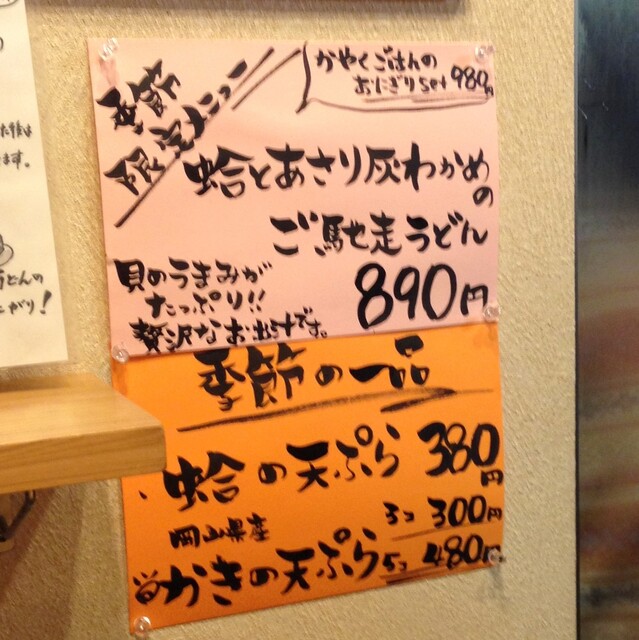 季節
限定メニュー
かやくごはんの
おにぎりset 980円
蛤とあさり灰わかめ
の
ご馳走うどん
貝のうまみが
たっぷり!!
贅沢なお出汁です。
890円
季節の一品
蛤の天ぷら 380円
岡山県産
かきの天ぷら
3コ 300円
5コ 480円
ます。
うどんの